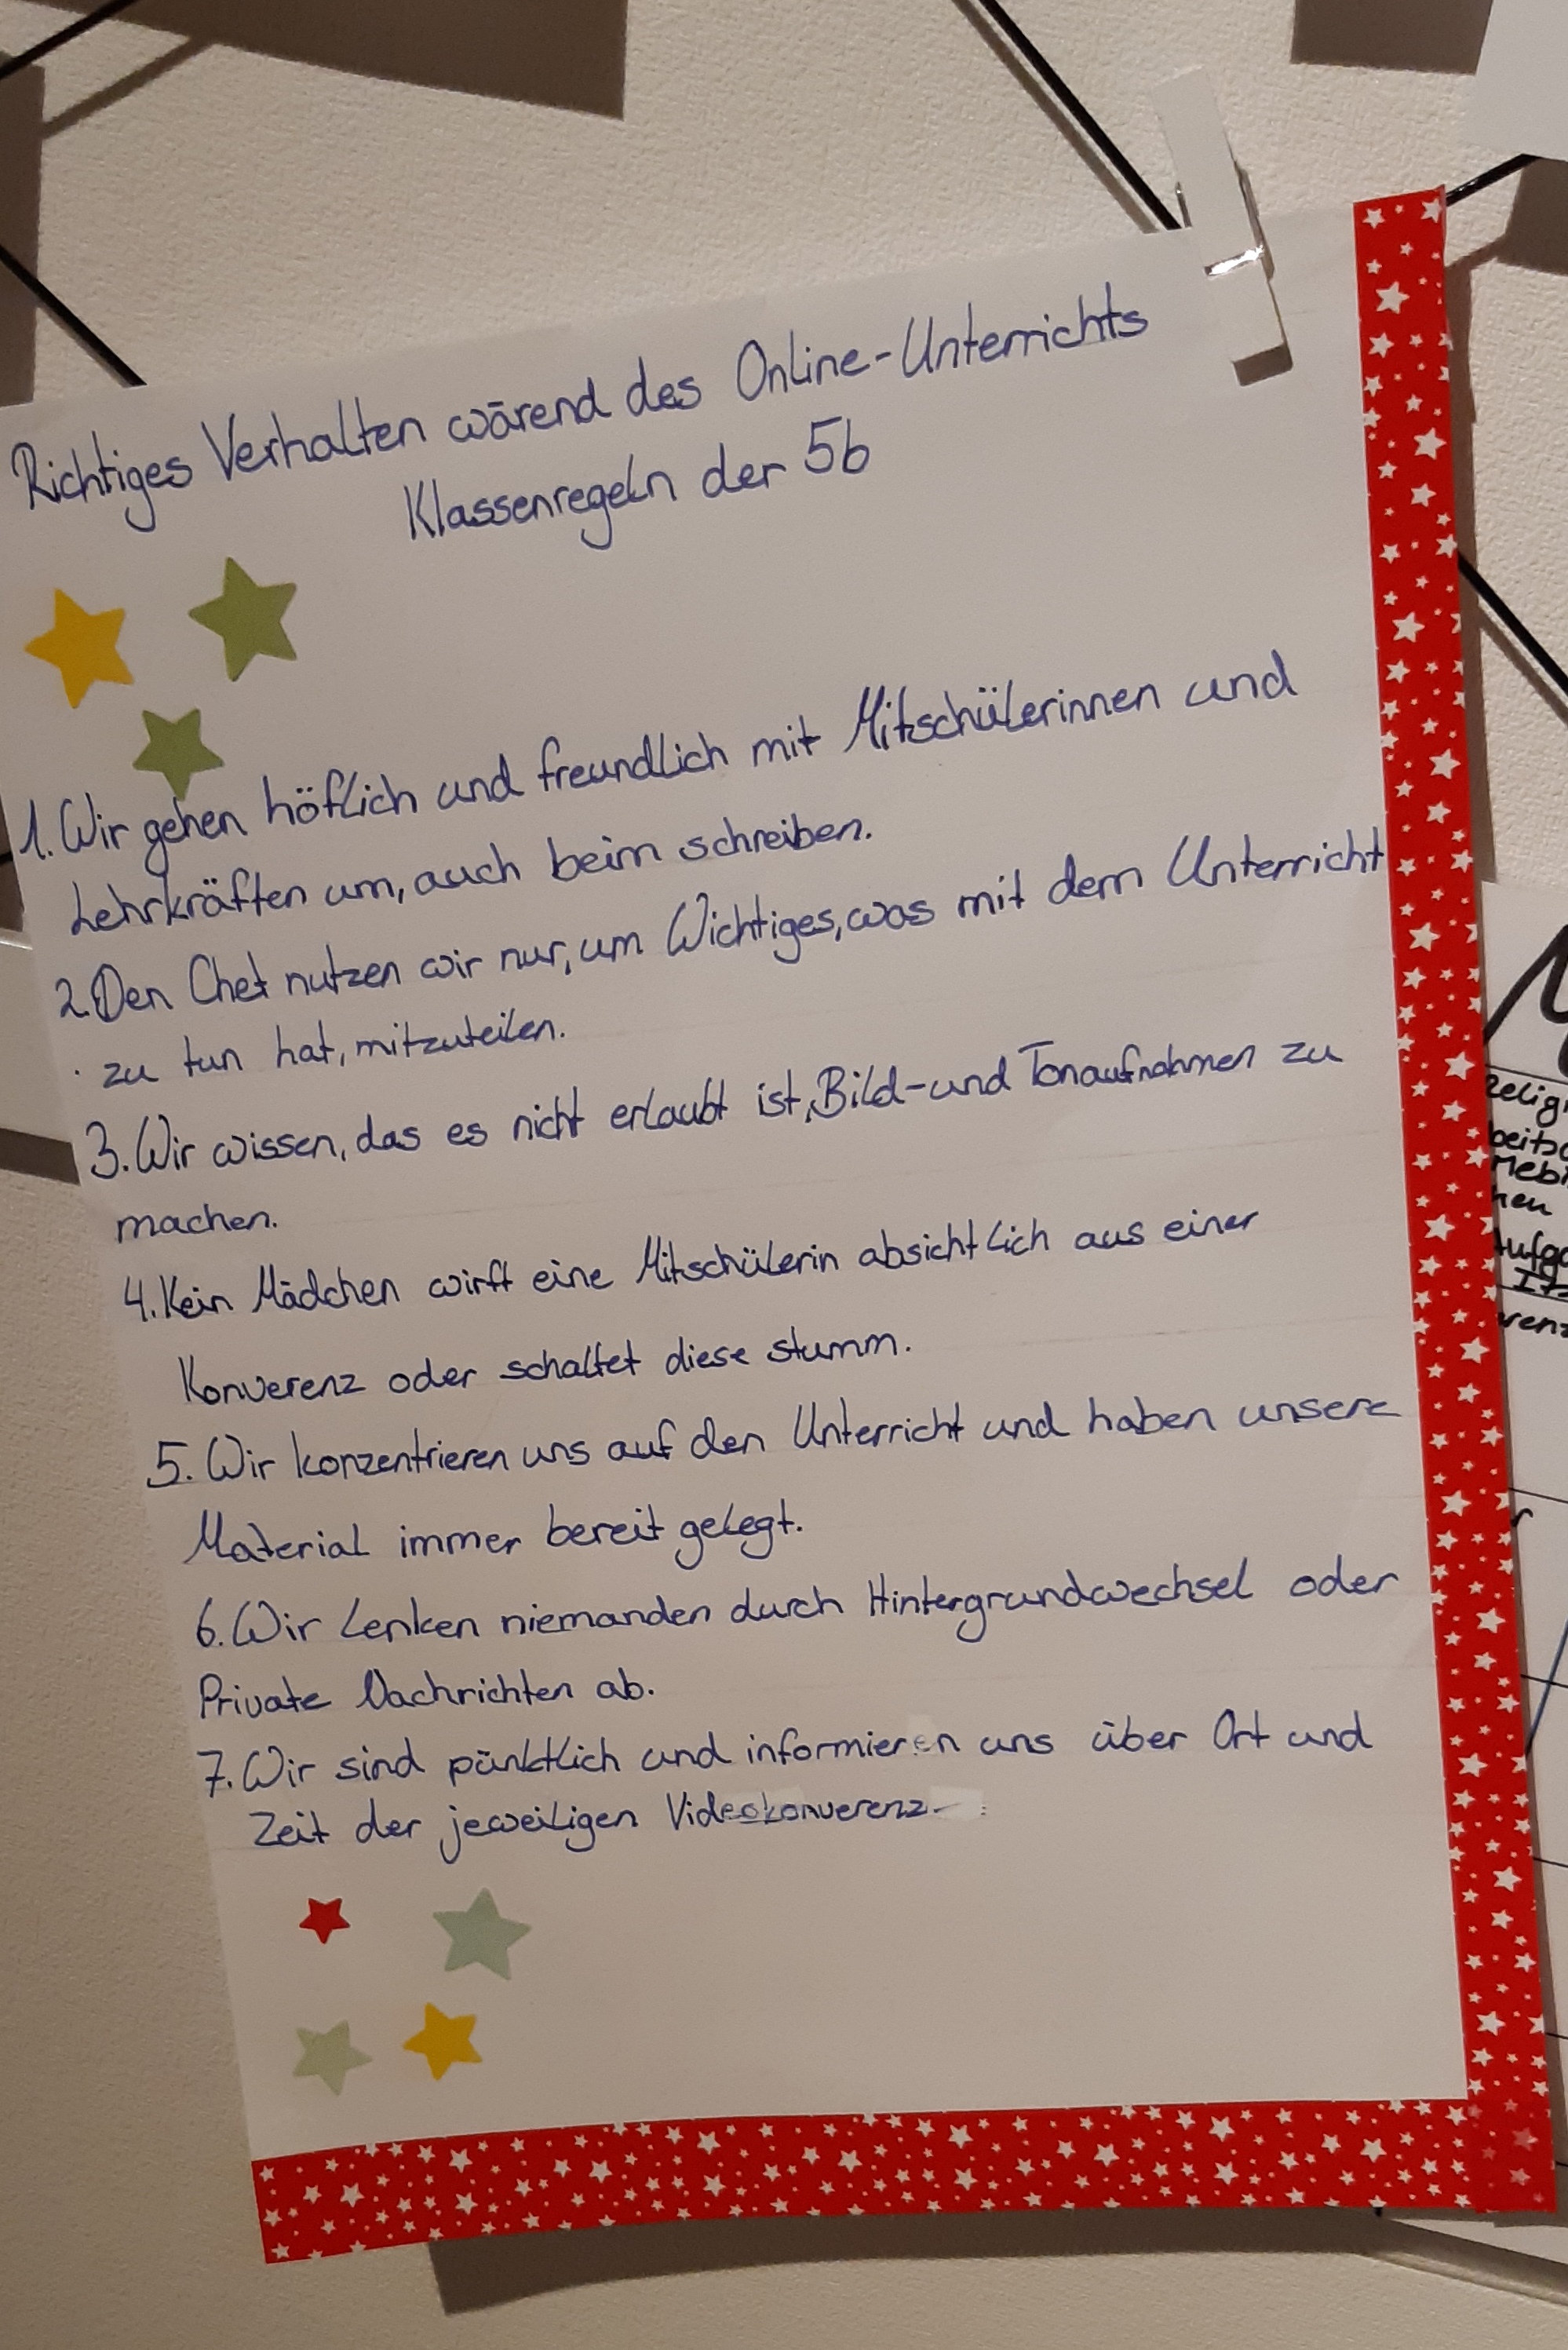 Richtiges Verhalten wärend des Online-Unterrichts
Klassenregeln der 5b
1. Wir gehen höflich und freundlich mit Mitschülerinnen und
Lehrkräften um, auch beim schreiben.
2. Den Chet nutzen wir nur, um Wichtiges, was mit dem Unterricht
zu tun hat, mitzuteilen.
3. Wir wissen, das es nicht erlaubt ist, Bild-und Tonaufnahmen zu
machen.
4. Kein Mädchen wirft eine Mitschülerin absichtlich aus einer
Konverenz oder schaltet diese stumm.
5. Wir konzentrieren uns auf den Unterricht und haben unsere
Material immer bereit gelegt.
6. Wir Lenken niemanden durch Hintergrundwechsel oder
Private Nachrichten ab.
7. Wir sind pünktlich und informieren uns über Ort und
Zeit der jeweiligen Videokonverenz.